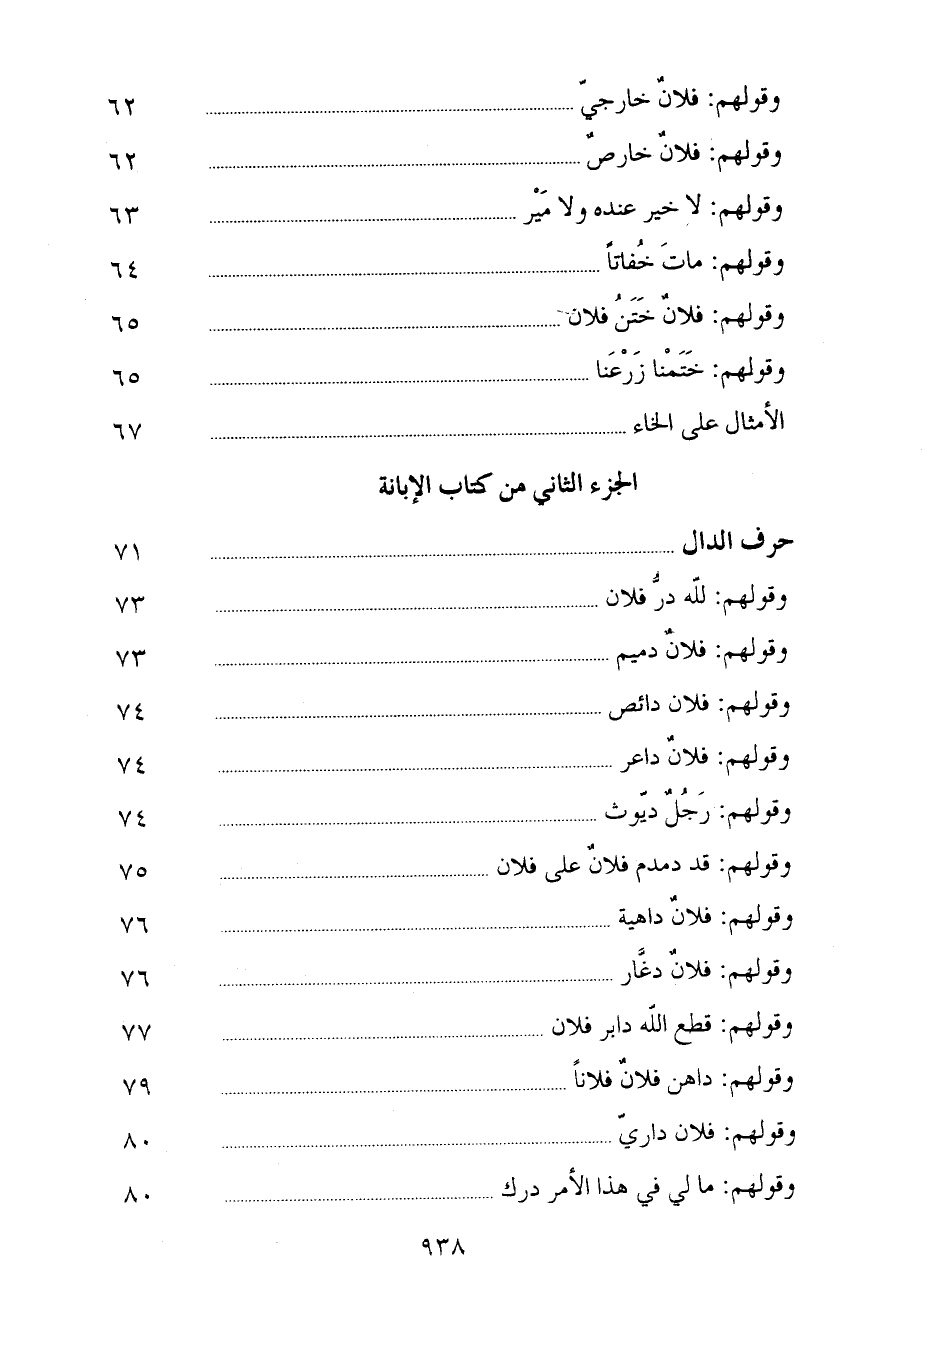 وقولهم: فلانٌ خارجيّ ........ ٦٢
وقولهم: فلانٌ خارصٌ ........ ٦٢
وقولهم: لا خير عنده ولا مَيْر ........ ٦٣
وقولهم: ماتَ خُفاتاً ........ ٦٤
وقولهم: فلانٌ خَتَنُ فلان ........ ٦٥
وقولهم: خَتَمْنا زَرْعَنا ........ ٦٥
الأمثال على الخاء ........ ٦٧
الجزء الثاني من كتاب الإبانة
حرف الدال ........ ٧١
وقولهم: للّه درُّ فلان ........ ٧٣
وقولهم: فلانٌ دميم ........ ٧٣
وقولهم: فلان دائص ........ ٧٤
وقولهم: فلانٌ داعر ........ ٧٤
وقولهم: رَجُلٌ ديّوث ........ ٧٤
وقولهم: قد دمدم فلانٌ على فلان ........ ٧٥
وقولهم: فلانٌ داهية ........ ٧٦
وقولهم: فلانٌ دغَّار ........ ٧٦
وقولهم: قطع اللّه دابر فلان ........ ٧٧
وقولهم: داهن فلانٌ فلاناً ........ ٧٩
وقولهم: فلان داريّ ........ ٨٠
وقولهم: ما لي في هذا الأمر درك ........ ٨٠
٩٣٨